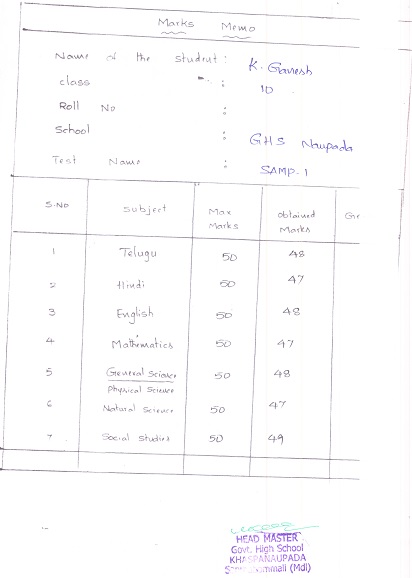 Marks Memo
Name of the Student : K. Ganesh
class : 10
Roll No :
School : GHS Naupada
Test Name : SAMP-1
S.No Subject Max Marks obtained Marks Gr
1 Telugu 50 48
2 Hindi 50 47
3 English 50 48
4 Mathematics 50 47
5 General Science 50 48
Physical Science
6 Natural Science 50 47
7 Social Studies 50 49
HEAD MASTER
Govt. High School
KHASPANAUPADA
(Mdl)